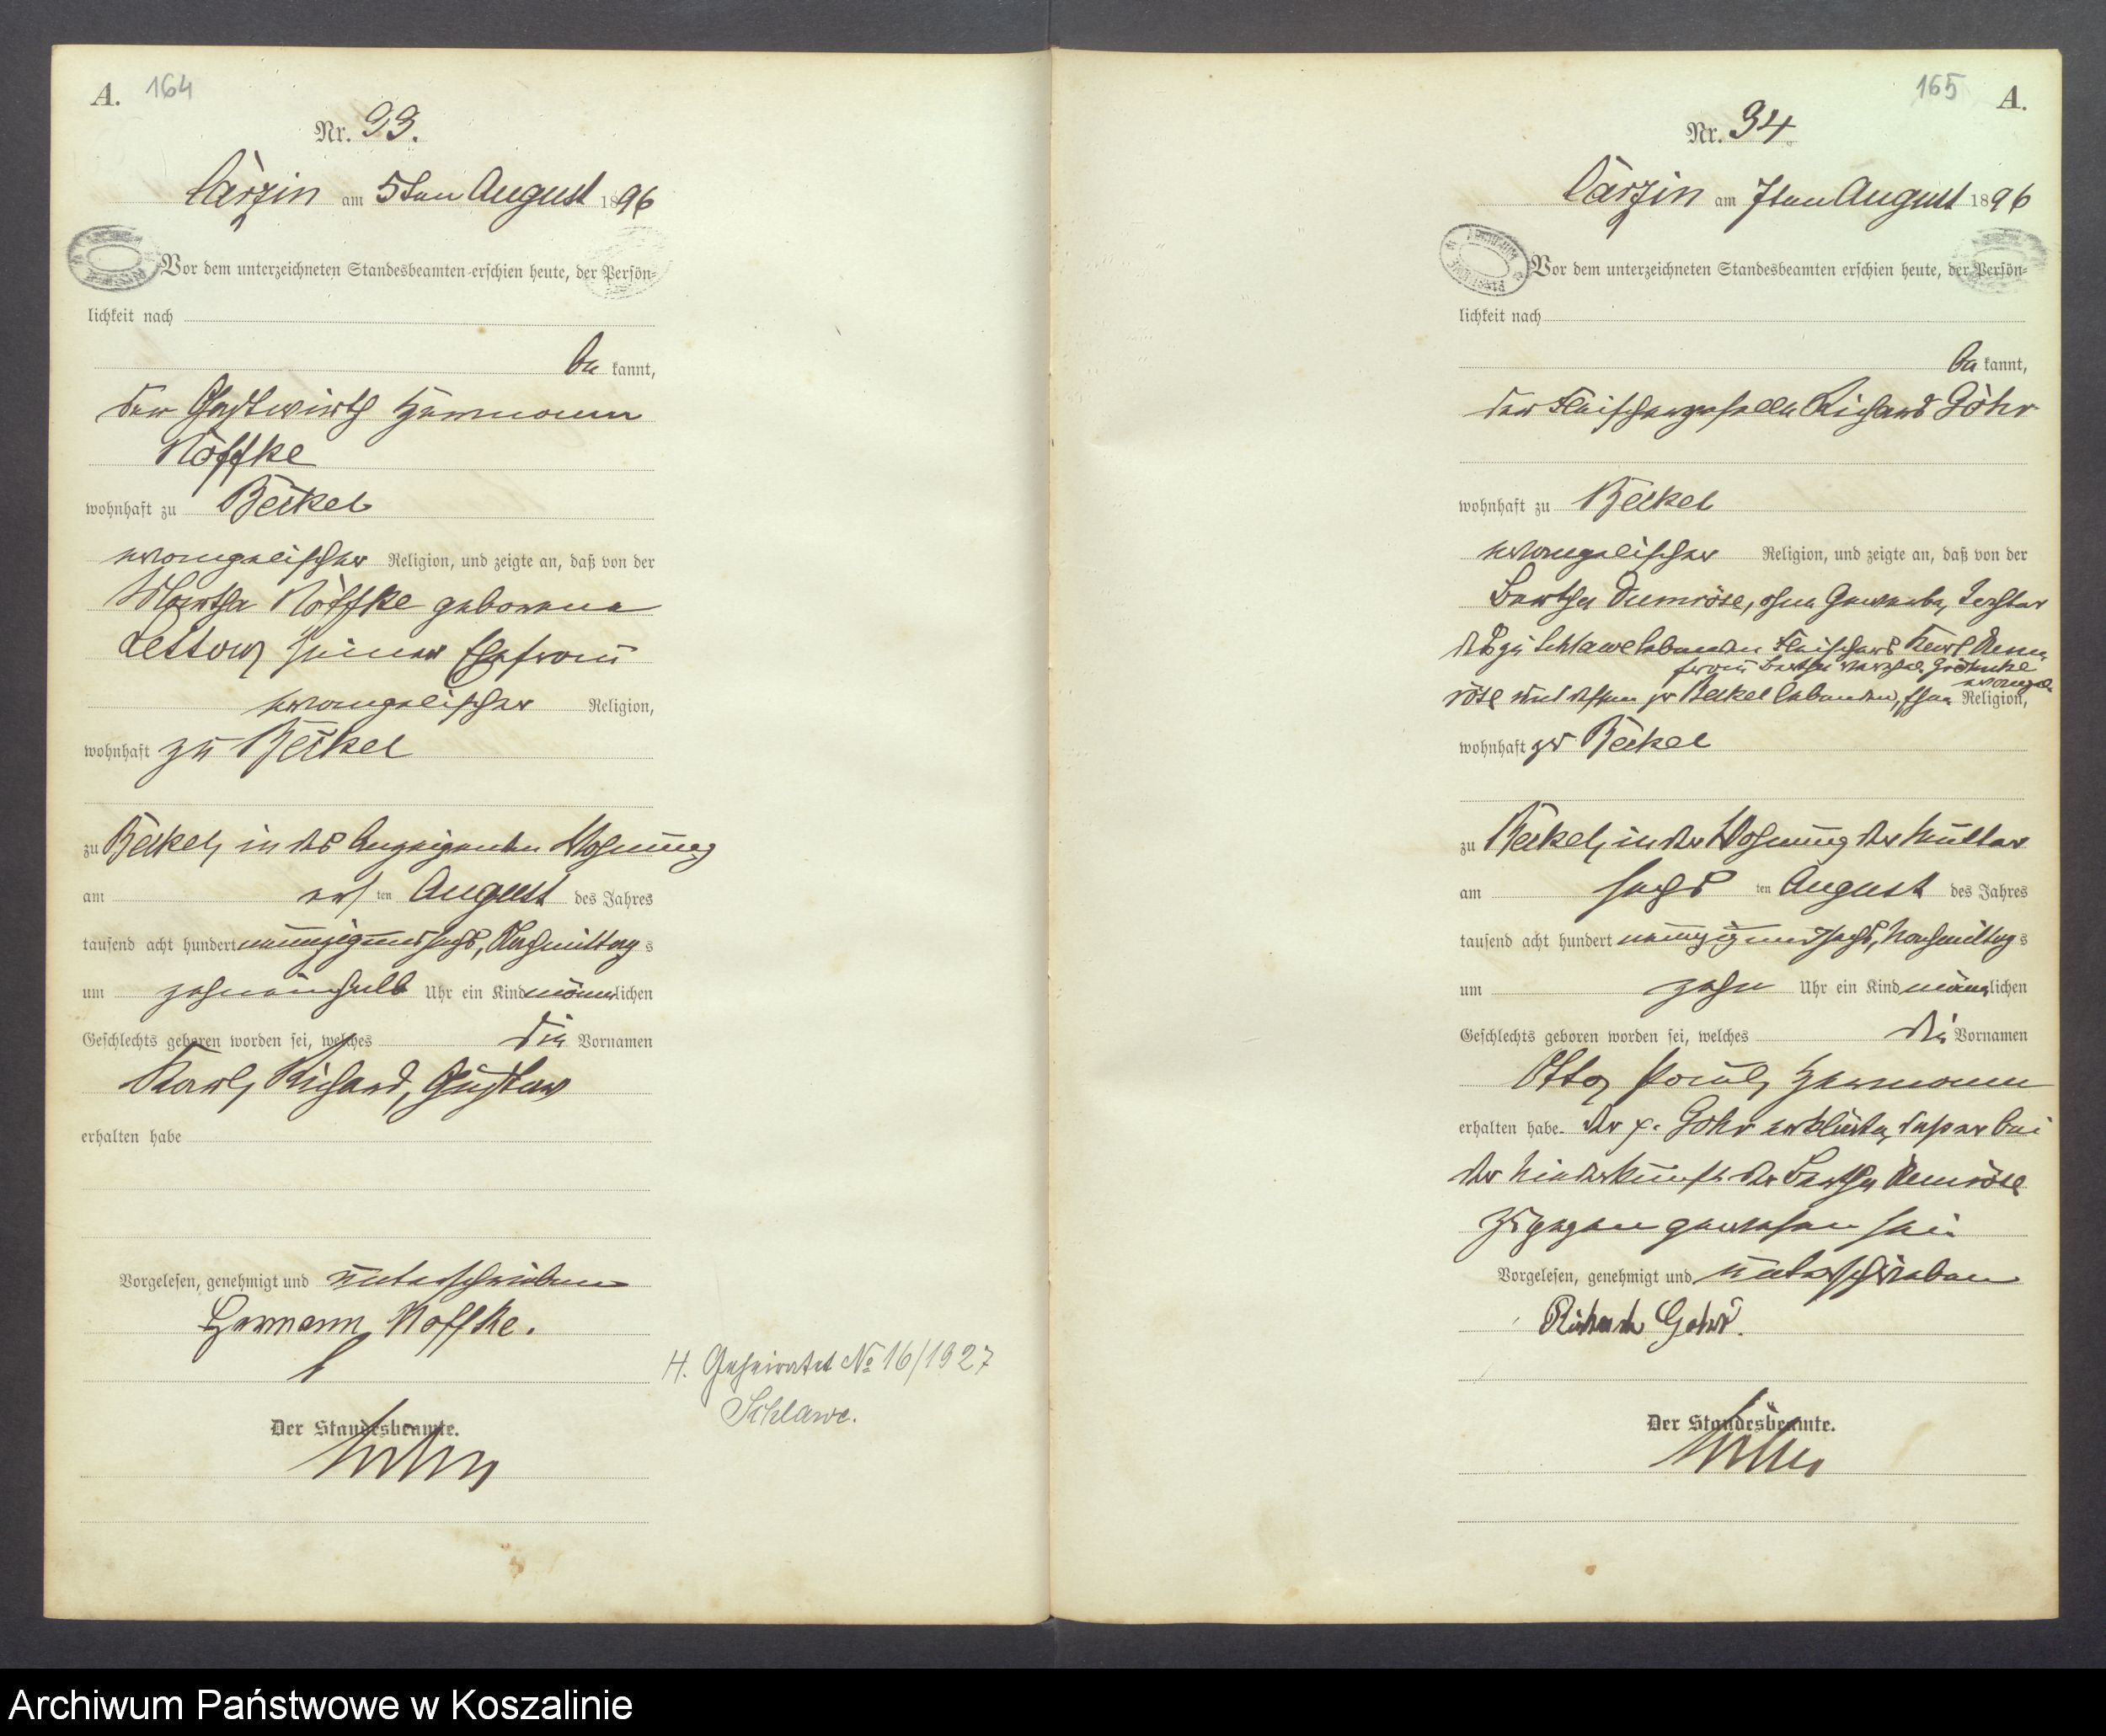 A. 164
Nr. 33.
Carzin am 5ten August 1896
Vor dem unterzeichneten Standesbeamten erschien heute, der Persön=
lichkeit nach
be kannt,
der Gastwirth Hermann
Noffke
wohnhaft zu Beckel
evangelischer Religion, und zeigte an, daß von der
Martha Noffke geborene
Lettow, seiner Ehefrau
evangelischer Religion,
wohnhaft zu Beckel
zu Beckel, in des Anzeigenden Wohnung
am ers ten August des Jahres
tausend acht hundert neunzig und sechs, Nachmittag s
um zehneinhalb Uhr ein Kind männlichen
Geschlechts geboren worden sei, welches die Vornamen
Karl, Richard, Gustav
erhalten habe
Vorgelesen, genehmigt und unterschrieben
Hermann Noffke.
Der Standesbeamte.
H. Geheiratet No 16/1927
Schlawe.
165 A.
Nr. 34
Carzin am 7ten August 1896
Vor dem unterzeichneten Standesbeamten erschien heute, der Persön=
lichkeit nach
be kannt,
der Fleischergeselle Richard Göhr
wohnhaft zu Beckel
evangelischer Religion, und zeigte an, daß von der
Bertha Dumröse, ohne Gewerbe, Tochter
des zu Schlawe lebenden Fleischers Karl Dum
frau Bertha
röse und dessen zu Beckel lebenden, Ehe evangel. Religion,
wohnhaft zu Beckel
zu Beckel, in der Wohnung der Mutter
am sechs ten August des Jahres
tausend acht hundert neunzig und sechs, Nachmittag s
um zehn Uhr ein Kind männlichen
Geschlechts geboren worden sei, welches die Vornamen
Otto, Paul, Hermann
erhalten habe. Der p. Göhr erklärte, daß er bei
der Niederkunft der Bertha Dumröse
zugegen gewesen sei.
Vorgelesen, genehmigt und unterschrieben
Richard Göhr.
Der Standesbeamte.
Archiwum Państwowe w Koszalinie